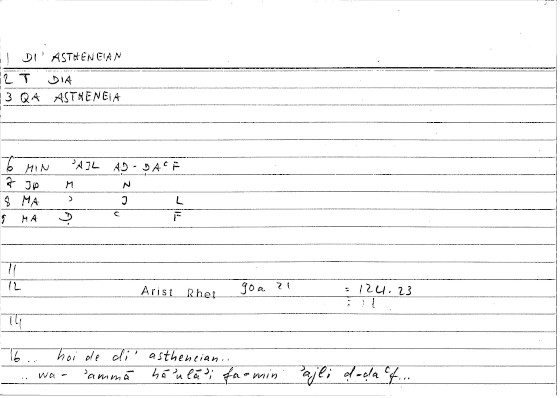 1 DI' ASTHENEIAN
2 T DIA
3 QA ASTHENEIA
6 MIN ʾAJL AḌ-ḌAʿF
7 JA M N
8 MA ʾ J L
9 MA Ḍ ʿ F
11
12 Arist Rhet 90a 21 = 124.23
14
16 .. hoi de di' astheneian..
.. wa-ʾammā hāʾulāʾi fa-min ʾajli ḍ-ḍaʿf...